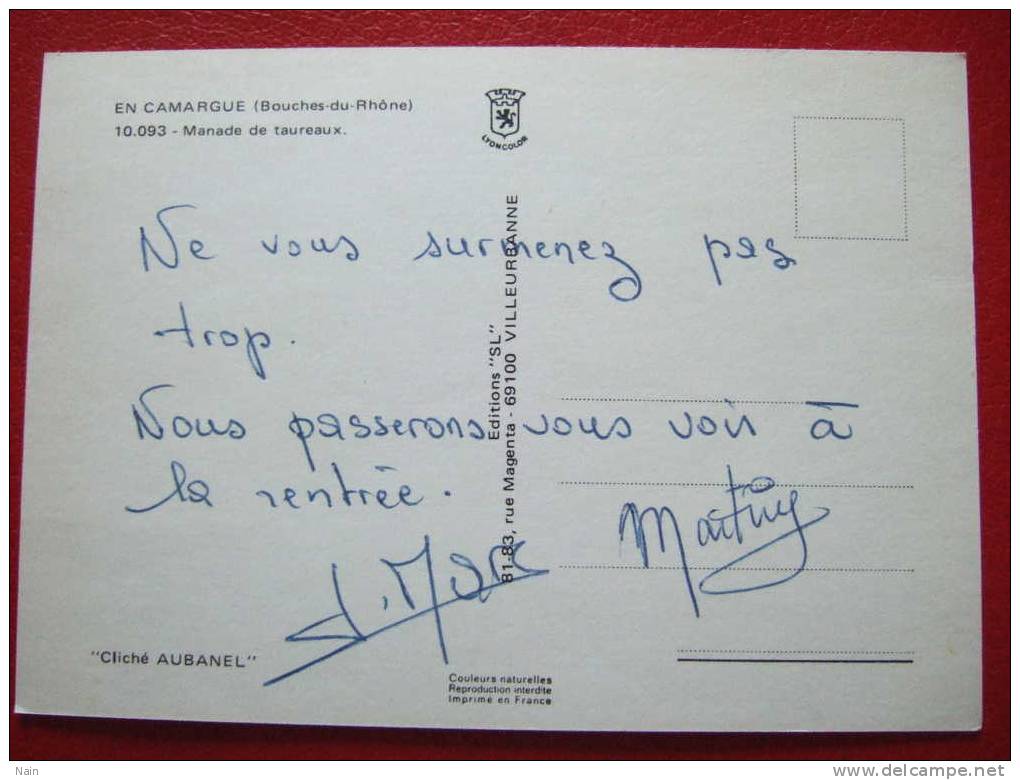 EN CAMARGUE (Bouches-du-Rhône)
10.093 - Manade de taureaux.
LYONCOLOR
Ne vous surmenez pas
trop.
Nous passerons vous voir à
la rentrée.
J. Marc
Martine
Editions "SL"
81-83, rue Magenta - 69100 VILLEURBANNE
"Cliché AUBANEL"
Couleurs naturelles
Reproduction interdite
Imprimé en France
Nain
http://www.delcampe.net